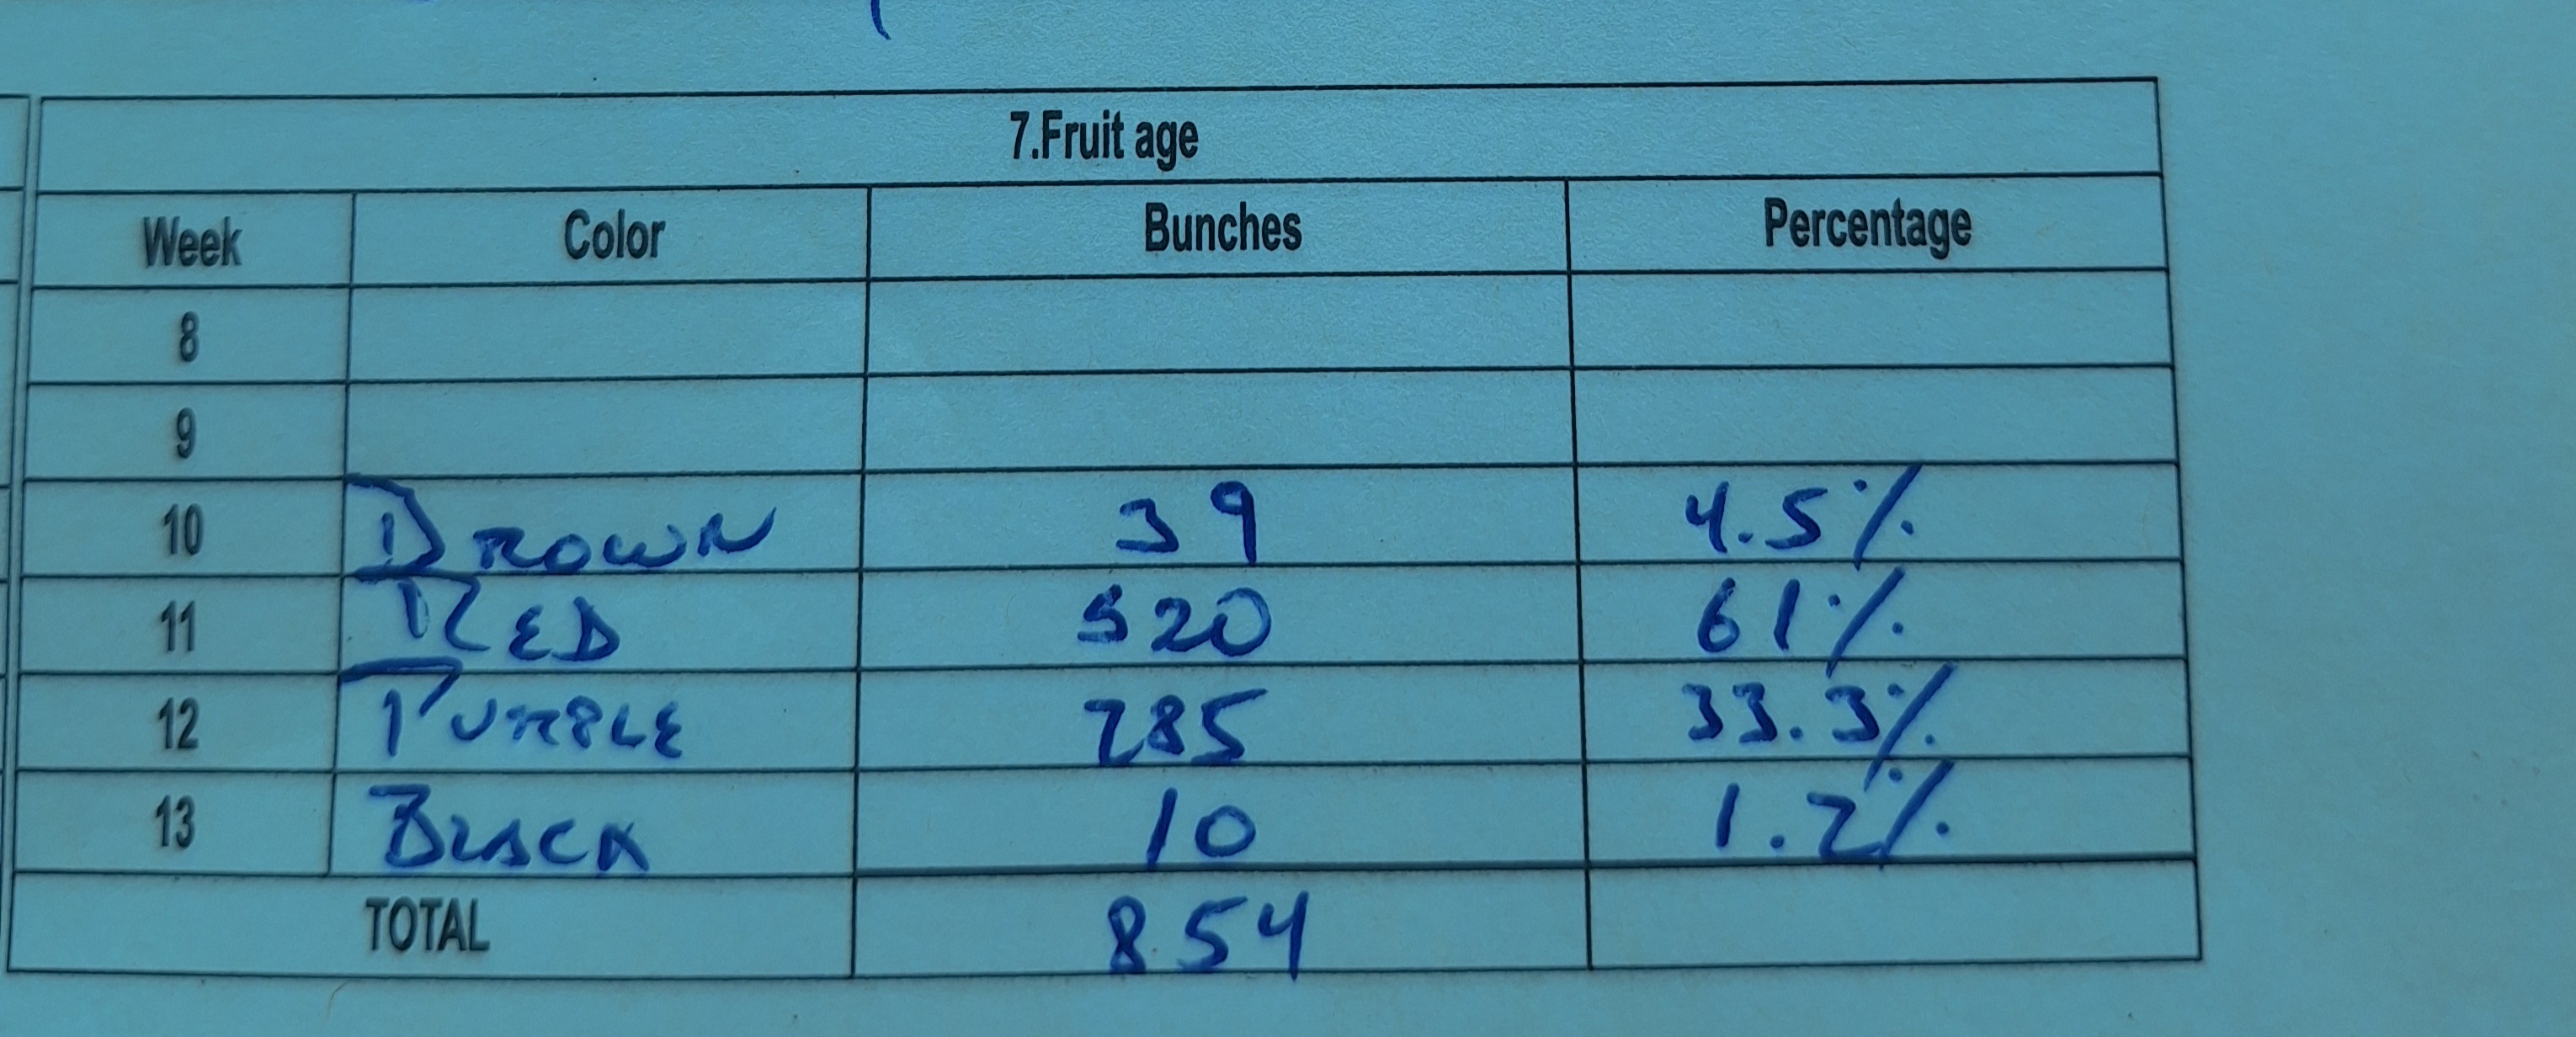 7.Fruit age
Week Color Bunches Percentage
8
9
10 BROWN 39 4.5%
11 RED 520 61%
12 PURPLE 285 33.3%
13 BLACK 10 1.2%
TOTAL 854